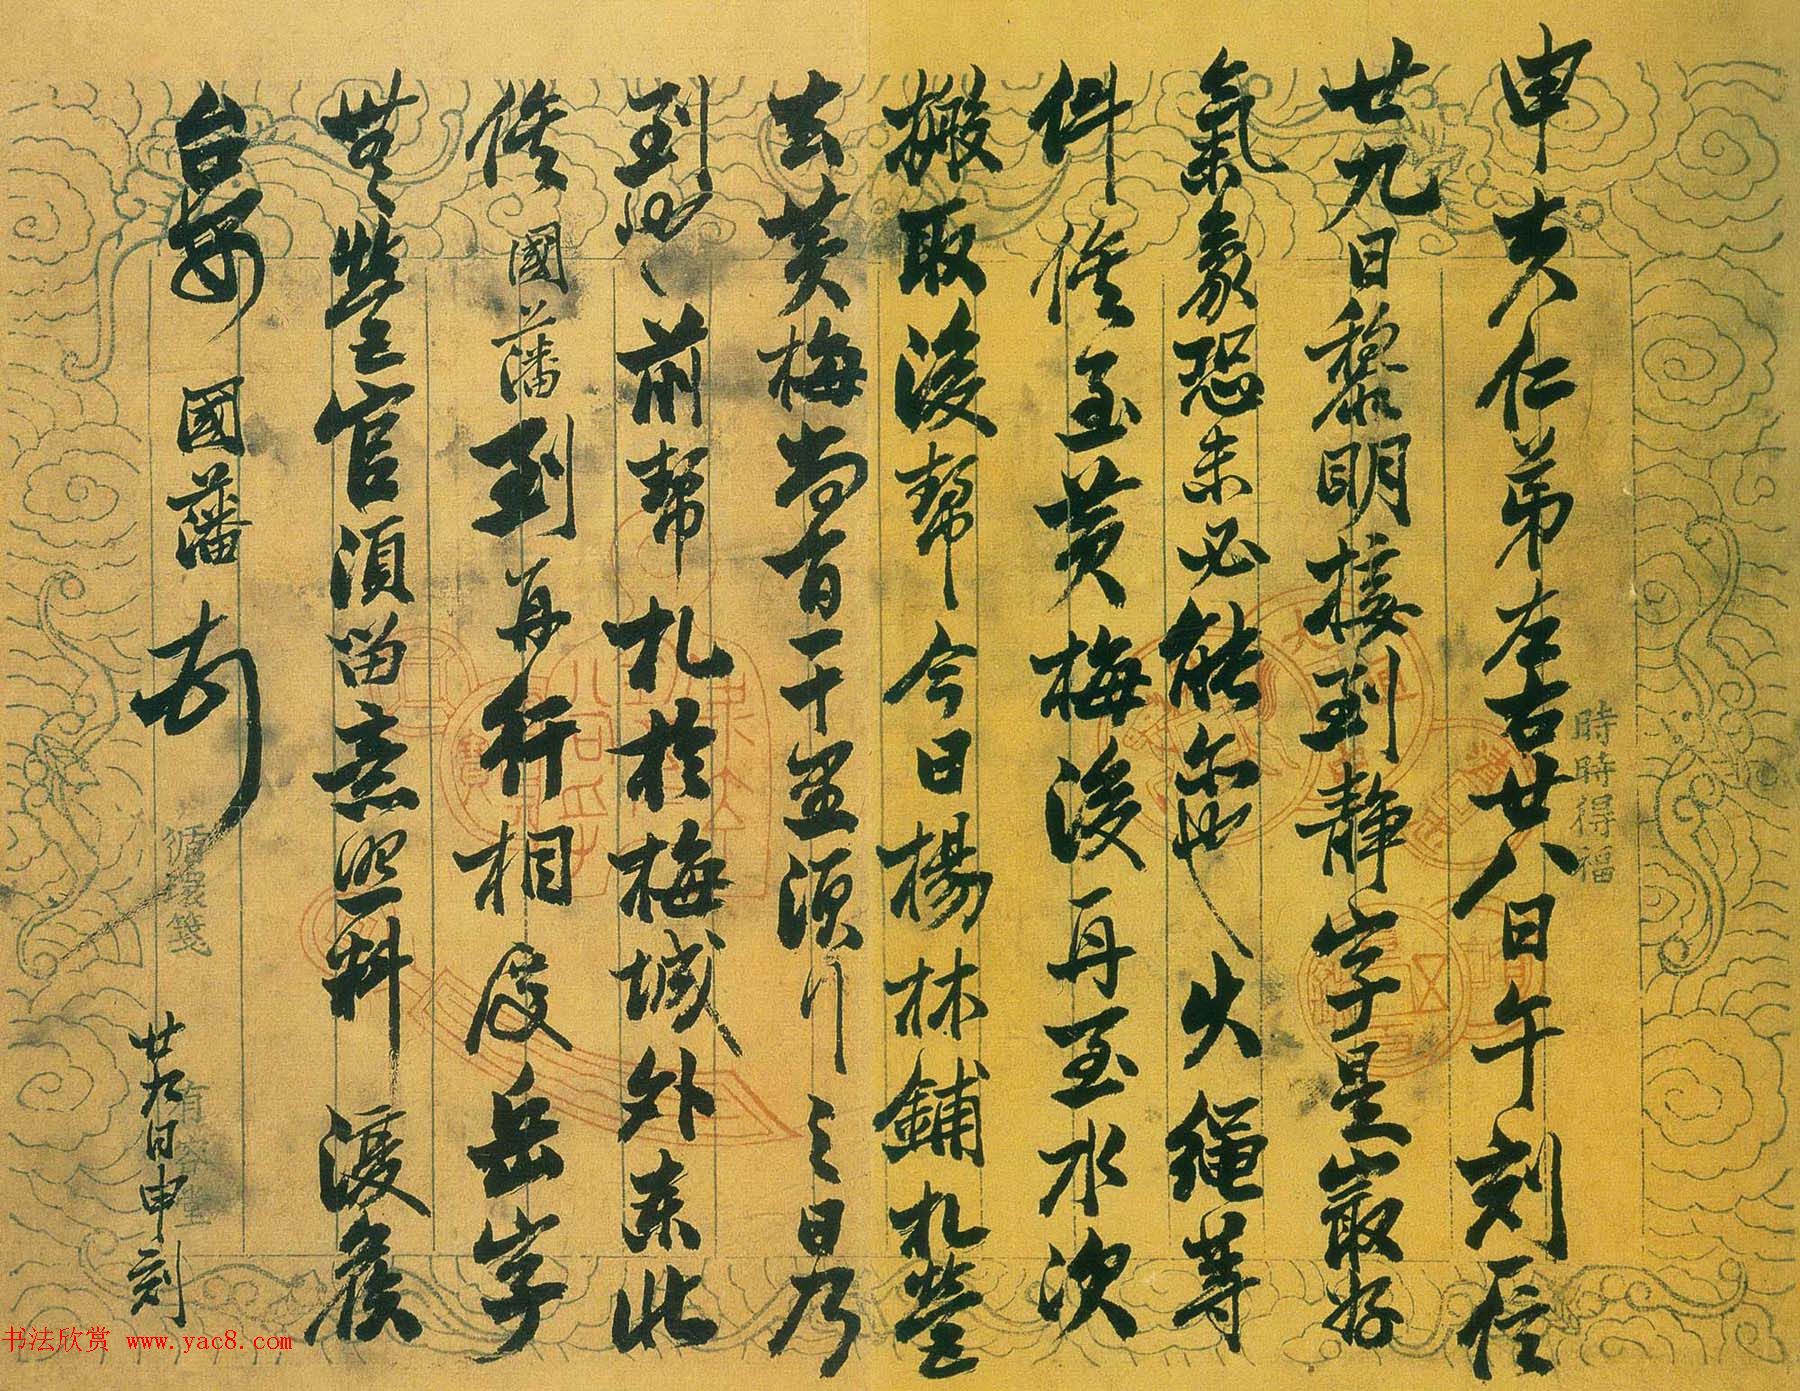 申夫仁弟左右廿八日午刻一信
廿九日黎明接到靜字是最好
氣象恐未必能爾也火繩等
件俟至黄梅後再至水次
搬取後幫今日楊林鋪札營
去黄梅尚有一十里須行三日乃
到也前幫札於梅城外東北
俟國藩到再行相度岳字
無營官須留意照料復候
台安 國藩 頓首
廿九日申刻
時時得福
循環箋
書法欣赏 www.yac8.com